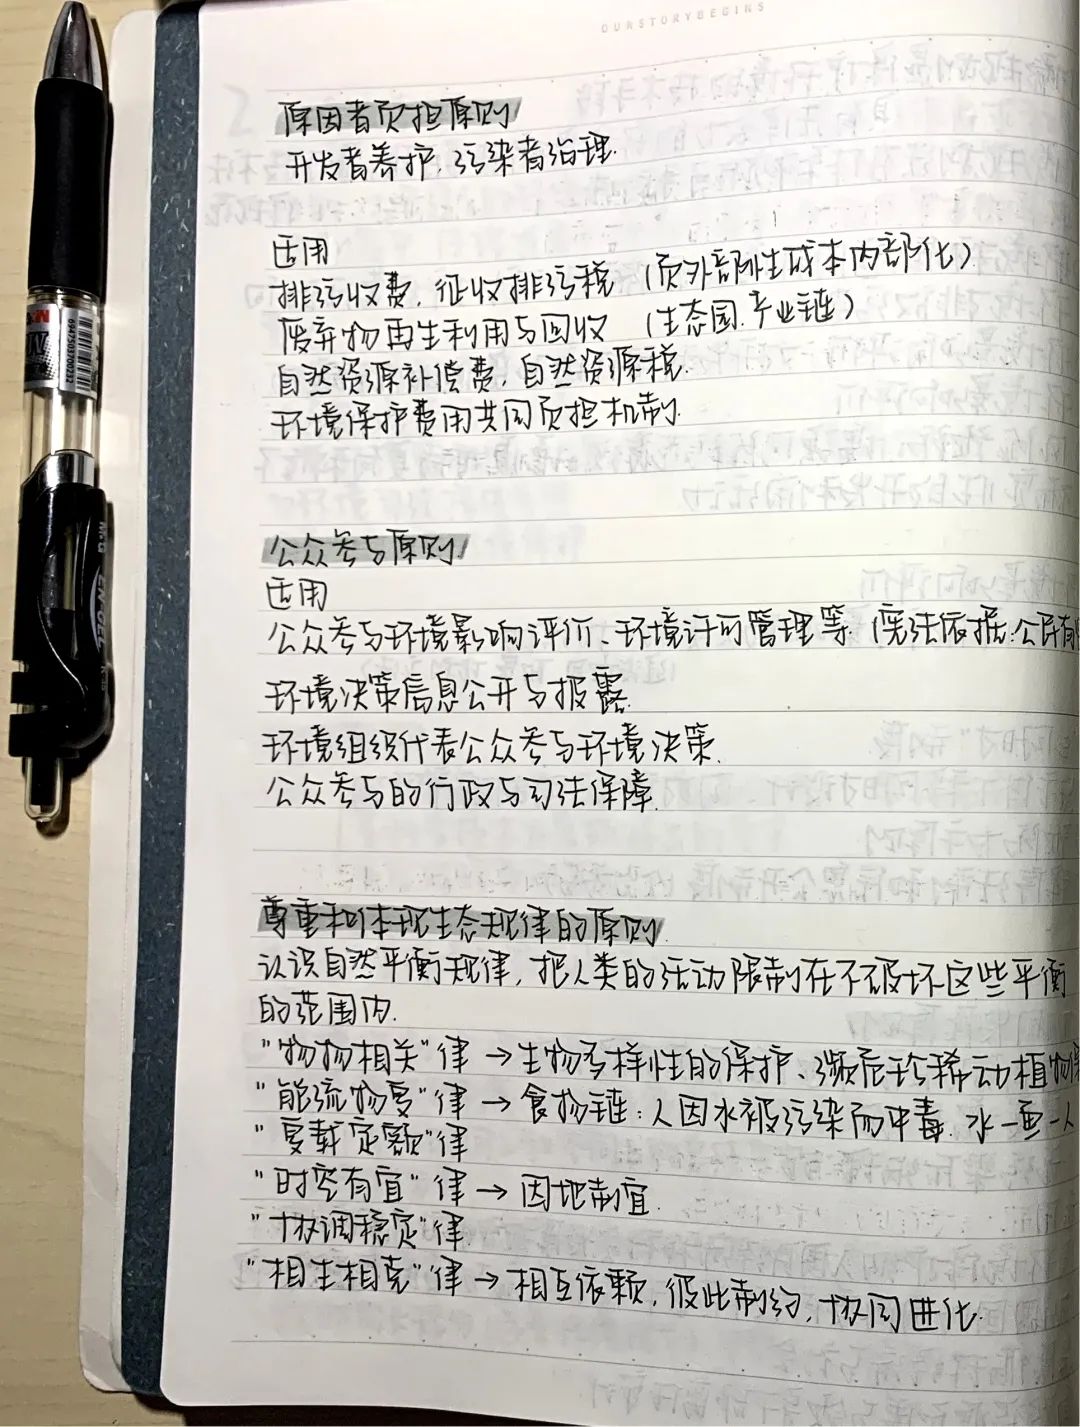 OURSTORYBEGINS
原因者负担原则
开发者养护，污染者治理.
适用
排污收费，征收排污税（负外部性成本内部化）
废弃物再生利用与回收（生态园.产业链）
自然资源补偿费，自然资源税.
环境保护费用共同负担机制.
公众参与原则
适用
公众参与环境影响评价、环境许可管理等.（宪法依据:公民有
环境决策信息公开与披露.
环境组织代表公众参与环境决策.
公众参与的行政与司法保障.
尊重和体现生态规律的原则.
认识自然平衡规律，把人类的活动限制在不破坏这些平衡
的范围内.
"物物相关"律→生物多样性的保护、濒危珍稀动植物保
"能流物复"律→食物链:人因水被污染而中毒.水一鱼一人
"负载定额"律
"时空有宜"律→因地制宜.
"协调稳定"律.
"相生相克"律→相互依赖，彼此制约，协同进化.
6947503700232
M&G
EN-GEL